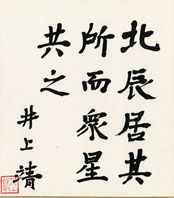 北辰居其
所而衆星
共之
井上靖